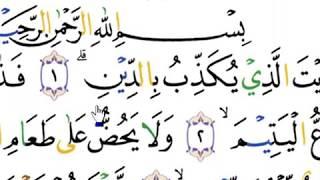 بِسْمِ اللهِ الرَّحْمٰنِ الرَّحِيْ
يْتَ الَّذِيْ يُكَذِّبُ بِالدِّيْنِ ۗ ١ فَذٰ
عُّ الْيَتِيْمَ ۙ ٢ وَلَا يَحُضُّ عَلٰى طَعَامِ ا